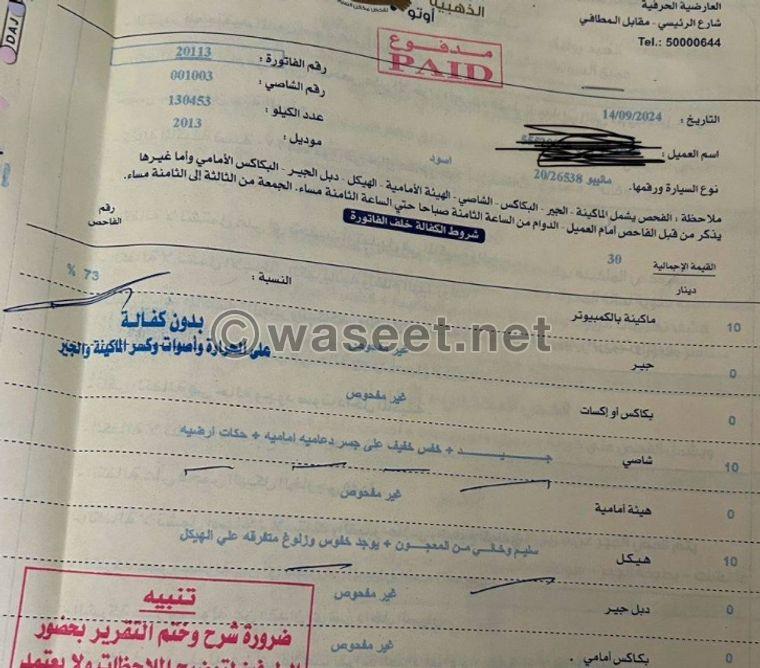 الذهبية
أوتو
العارضية الحرفية
شارع الرئيسي - مقابل المطافي
Tel.: 50000644
DAJ
مدفوع
PAID
رقم الفاتورة : 20113
رقم الشاصي : 001003
عدد الكيلو : 130453
موديل : 2013
التاريخ : 14/09/2024
اسم العميل :
نوع السيارة ورقمها. ماليبو 20/26538 اسود
ملاحظة : الفحص يشمل الماكينة - الجير - البكاكس - الشاصي - الهيئة الأمامية - الهيكل - دبل الجير - البكاكس الأمامي وأما غيرها
يذكر من قبل الفاحص أمام العميل - الدوام من الساعة الثامنة صباحا حتي الساعة الثامنة مساء. الجمعة من الثالثة إلى الثامنة مساء.
شروط الكفالة خلف الفاتورة
رقم الفاحص
القيمة الإجمالية 30
دينار
10 ماكينة بالكمبيوتر النسبة : 73 %
بدون كفالة
على الحرارة وأصوات وكسر الماكينة والجير
0 جير غير مفحوص
0 بكاكس أو إكسات غير مفحوص
10 شاصي جيد + خفس خفيف على جسر دعاميه اماميه + حكات ارضيه
0 هيئة أمامية غير مفحوص
10 هيكل سليم وخالي من المعجون + يوجد خفوس وزلوغ متفرقه علي الهيكل
0 دبل جير غير مفحوص
0 بكاكس أمامي . غير مفحوص
تنبيه
ضرورة شرح وختم التقرير بحضور
©waseet.net